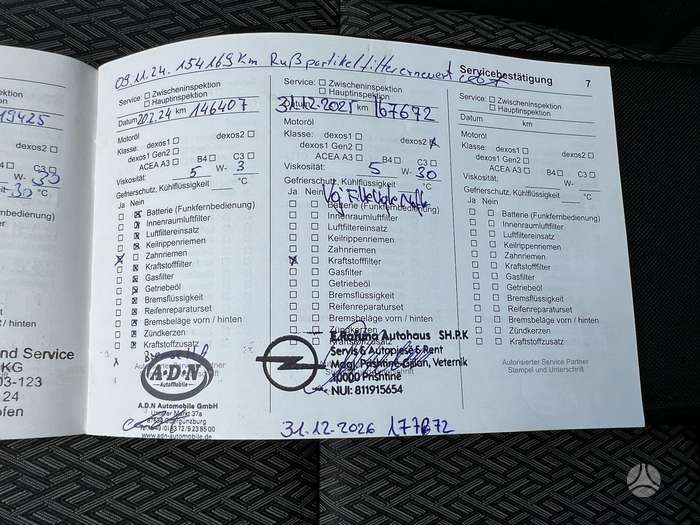 09.11.24. 154169 Km Rußpartikelfilter erneuert
Servicebestätigung 7
19425
dexos2
C3
W- 30
-30 °C
nfernbedienung)
/ hinten
nd Service
KG
03-123
24
ofen
Service: Zwischeninspektion
Hauptinspektion
Datum 20.2.24 km 146407
Motoröl
Klasse: dexos1 dexos2
dexos1 Gen2
ACEA A3 B4 C3
Viskosität: 5 W- 3
Gefrierschutz, Kühlflüssigkeit °C
Ja Nein
Batterie (Funkfernbedienung)
Innenraumluftfilter
Luftfiltereinsatz
Keilrippenriemen
Zahnriemen
Kraftstofffilter
Gasfilter
Getriebeöl
Bremsflüssigkeit
Reifenreparaturset
Bremsbeläge vorn / hinten
Zündkerzen
Kraftstoffzusatz
A.D.N
Automobile
A.D.N Automobile GmbH
Unterer Markt 37a
www.adn-automobile.de
Service: Zwischeninspektion
Hauptinspektion
31.12.2025 km 167672
Motoröl
Klasse: dexos1 dexos2
dexos1 Gen2
ACEA A3 B4 C3
Viskosität: 5 W- 30
Gefrierschutz, Kühlflüssigkeit °C
Ja Nein
Batterie (Funkfernbedienung)
Innenraumluftfilter
Luftfiltereinsatz
Keilrippenriemen
Zahnriemen
Kraftstofffilter
Gasfilter
Getriebeöl
Bremsflüssigkeit
Reifenreparaturset
Bremsbeläge vorn / hinten
Zündkerzen
Autohaus SH.P.K
Servis & Autopjesë & Rent
Magj. Prishtinë-Gjilan, Veternik
10000 Prishtinë
NUI: 811915654
31.12.2026 177672
Service: Zwischeninspektion
Hauptinspektion
Datum km
Motoröl
Klasse: dexos1 dexos2
dexos1 Gen2
ACEA A3 B4 C3
Viskosität: W-
Gefrierschutz, Kühlflüssigkeit °C
Ja Nein
Batterie (Funkfernbedienung)
Innenraumluftfilter
Luftfiltereinsatz
Keilrippenriemen
Zahnriemen
Kraftstofffilter
Gasfilter
Getriebeöl
Bremsflüssigkeit
Reifenreparaturset
Bremsbeläge vorn / hinten
Zündkerzen
Kraftstoffzusatz
Autorisierter Service Partner
Stempel und Unterschrift